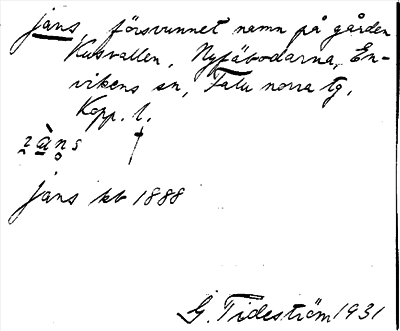 jans, försvunnet namn på gården
Kusvallen, Nyfäbodarna, En-
vikens sn, Falu norra tg,
Kopp. l.
jans kb 1888
G. Tideström 1931